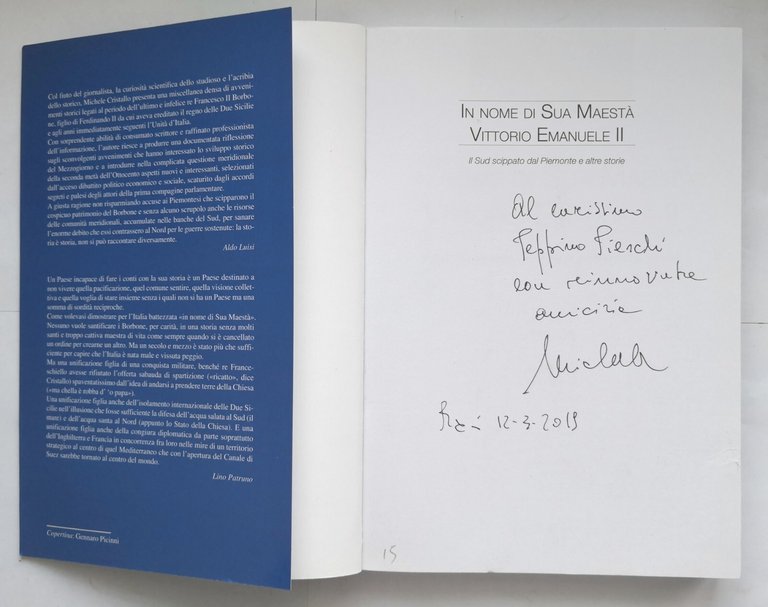 Col fiuto del giornalista, la curiosità scientifica dello studioso e l'acribia
dello storico, Michele Cristallo presenta una miscellanea densa di avveni-
menti storici legati al periodo dell'ultimo e infelice re Francesco II Borbo-
ne, figlio di Ferdinando II da cui aveva ereditato il regno delle Due Sicilie
e agli anni immediatamente seguenti l'Unità d'Italia.
Con sorprendente abilità di consumato scrittore e raffinato professionista
dell'informazione, l'autore riesce a produrre una documentata riflessione
sugli sconvolgenti avvenimenti che hanno interessato lo sviluppo storico
del Mezzogiorno e a introdurre nella complicata questione meridionale
della seconda metà dell'Ottocento aspetti nuovi e interessanti, selezionati
dall'acceso dibattito politico economico e sociale, scaturito dagli accordi
segreti e palesi degli attori della prima compagine parlamentare.
A giusta ragione non risparmiando accuse ai Piemontesi che scipparono il
cospicuo patrimonio del Borbone e senza alcuno scrupolo anche le risorse
delle comunità meridionali, accumulate nelle banche del Sud, per sanare
l'enorme debito che essi contrassero al Nord per le guerre sostenute: la sto-
ria è storia, non si può raccontare diversamente.
Aldo Luisi
Un Paese incapace di fare i conti con la sua storia è un Paese destinato a
non vivere quella pacificazione, quel comune sentire, quella visione collet-
tiva e quella voglia di stare insieme senza i quali non si ha un Paese ma una
somma di sordità reciproche.
Come volevasi dimostrare per l'Italia battezzata «in nome di Sua Maestà».
Nessuno vuole santificare i Borbone, per carità, in una storia senza molti
santi e troppo cattiva maestra di vita come sempre quando si è cancellato
un ordine per crearne un altro. Ma un secolo e mezzo è stato più che suffi-
ciente per capire che l'Italia è nata male e vissuta peggio.
Ma una unificazione figlia di una conquista militare, benché re France-
schiello avesse rifiutato l'offerta sabauda di spartizione («ricatto», dice
Cristallo) spaventatissimo dall'idea di andarsi a prendere terre della Chiesa
(«ma chella è robba d' 'o papa»).
Una unificazione figlia anche dell'isolamento internazionale delle Due Si-
cilie nell'illusione che fosse sufficiente la difesa dell'acqua salata al Sud (il
mare) e dell'acqua santa al Nord (appunto lo Stato della Chiesa). E una
unificazione figlia anche della congiura diplomatica da parte soprattutto
dell'Inghilterra e Francia in concorrenza fra loro nelle mire di un territorio
strategico al centro di quel Mediterraneo che con l'apertura del Canale di
Suez sarebbe tornato al centro del mondo.
Lino Patruno
Copertina: Gennaro Picinni
IN NOME DI SUA MAESTÀ
VITTORIO EMANUELE II
Il Sud scippato dal Piemonte e altre storie
Al carissimo
Peppino Fieschi
con rinnovata
amicizia
Michele
12-3-2019
15